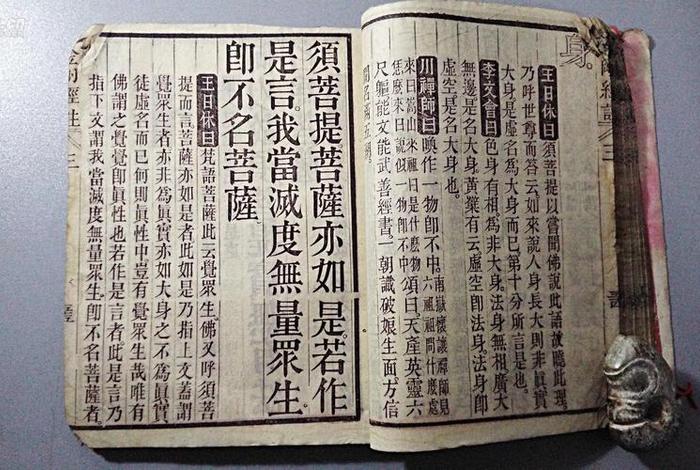 身。
王日休曰須菩提以嘗聞佛說此語故曉此理。
乃呼世尊而答云如來說人身長大則非眞實
大身是虛名爲大身而已第十分所言是也。
李文會曰色身有相。爲非大身。法身無相廣大
無邊是名大身黃蘗有云虛空卽法身。法身卽
虛空是名大身也。
川禪師曰喚作一物卽不中。南嶽懷讓禪師見六祖祖問什麼處
來曰嵩山來祖曰是什麼物恁麼來曰說似一物卽不中頌曰天產英靈六
尺軀能文能武善經書。一朝識破娘生面方信
閒名滿五湖。
須菩提菩薩亦如是若作
是言。我當滅度無量眾生。
卽不名菩薩。
王日休曰梵語菩薩此云覺眾生佛又呼須菩
提而言菩薩亦如是者此如是乃指上文蓋謂
覺眾生者亦非爲眞實亦如大身之不爲眞實
徒虛名而已何則眞性中豈有覺眾生哉唯有
佛謂之覺覺卽眞性也若作是言者此是言乃
指下文謂我當滅度無量眾生。卽不名菩薩者。
金剛經註 三